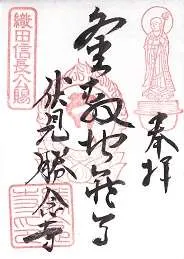 奉拝
釜敷地蔵尊
伏見 勝念寺
織田信長公賜